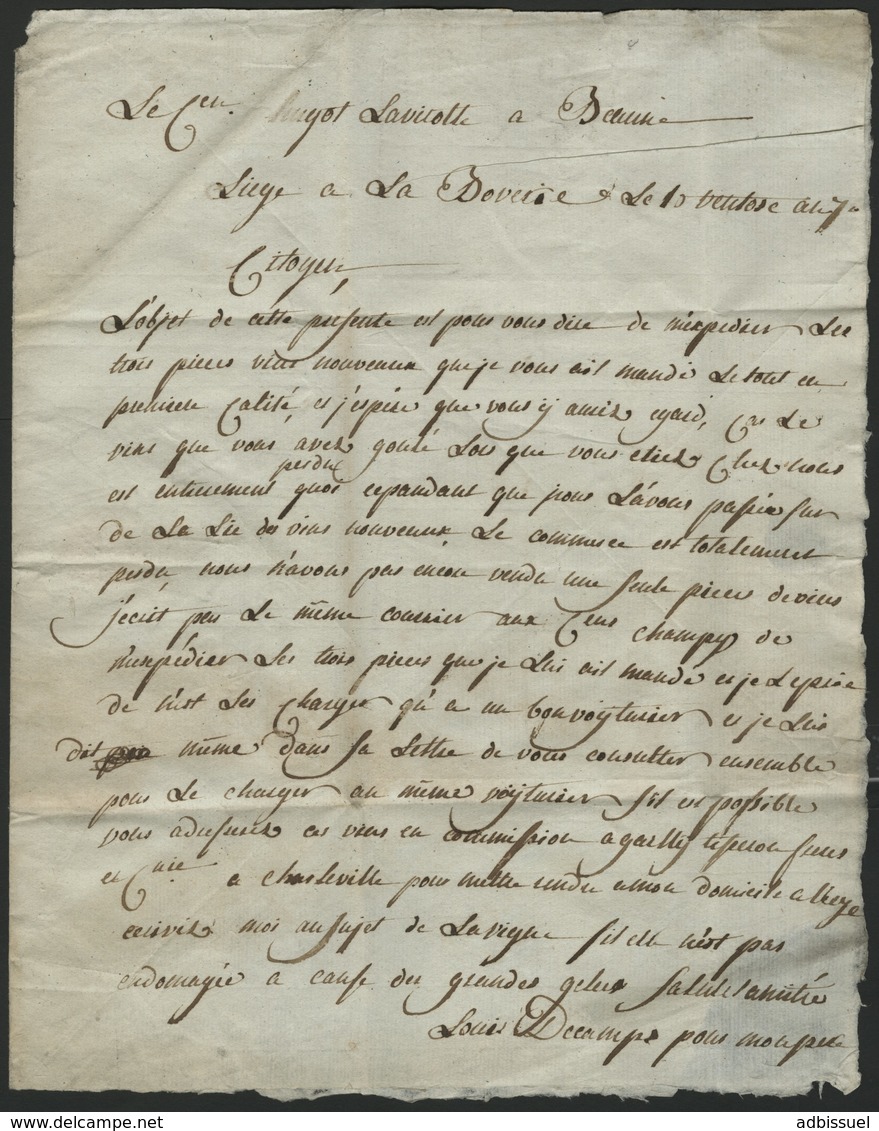 Le Cen. hugot Lavirotte a Beaune
Liege a La Boverie Le 10 ventose an 7e
Citoyen,
L'objet de cette présente est pour vous dire de m'expedier Les
trois pieces vins nouveaux que je vous ait mandé Le tout en
premiere Calité, et j'espére que vous y aurez egard, Car Le
vins que vous avez gouté Lors que vous etiez Chez nous
est entierement perdu quoi cepandant que nous L'avons passée sur
de La Lie des vins nouveaux Le commerce est totalement
perdu, nous n'avons pas encore vendu une seule pieces de vins
j'ecrit par Le même courrier aux Cens champy de
m'expédier Les trois pieces que je Lui ait mandé et je Le prie
de n'est Les Charger qu'a un bon voyturier et je Lui
dit même dans sa Lettre de vous consulter ensemble
pour Le charger au même voyturier s'il est possible
vous adresserez ces vins en commission a freres
et Cnie a charleville pour mettre rendu a mon domicile a Liege
ecrivez moi au sujet de La vigne sil elle n'est pas
endomagée a cause des grandes gelez Salut et amitié
Louis Decamps pour mon pere
adbissuel